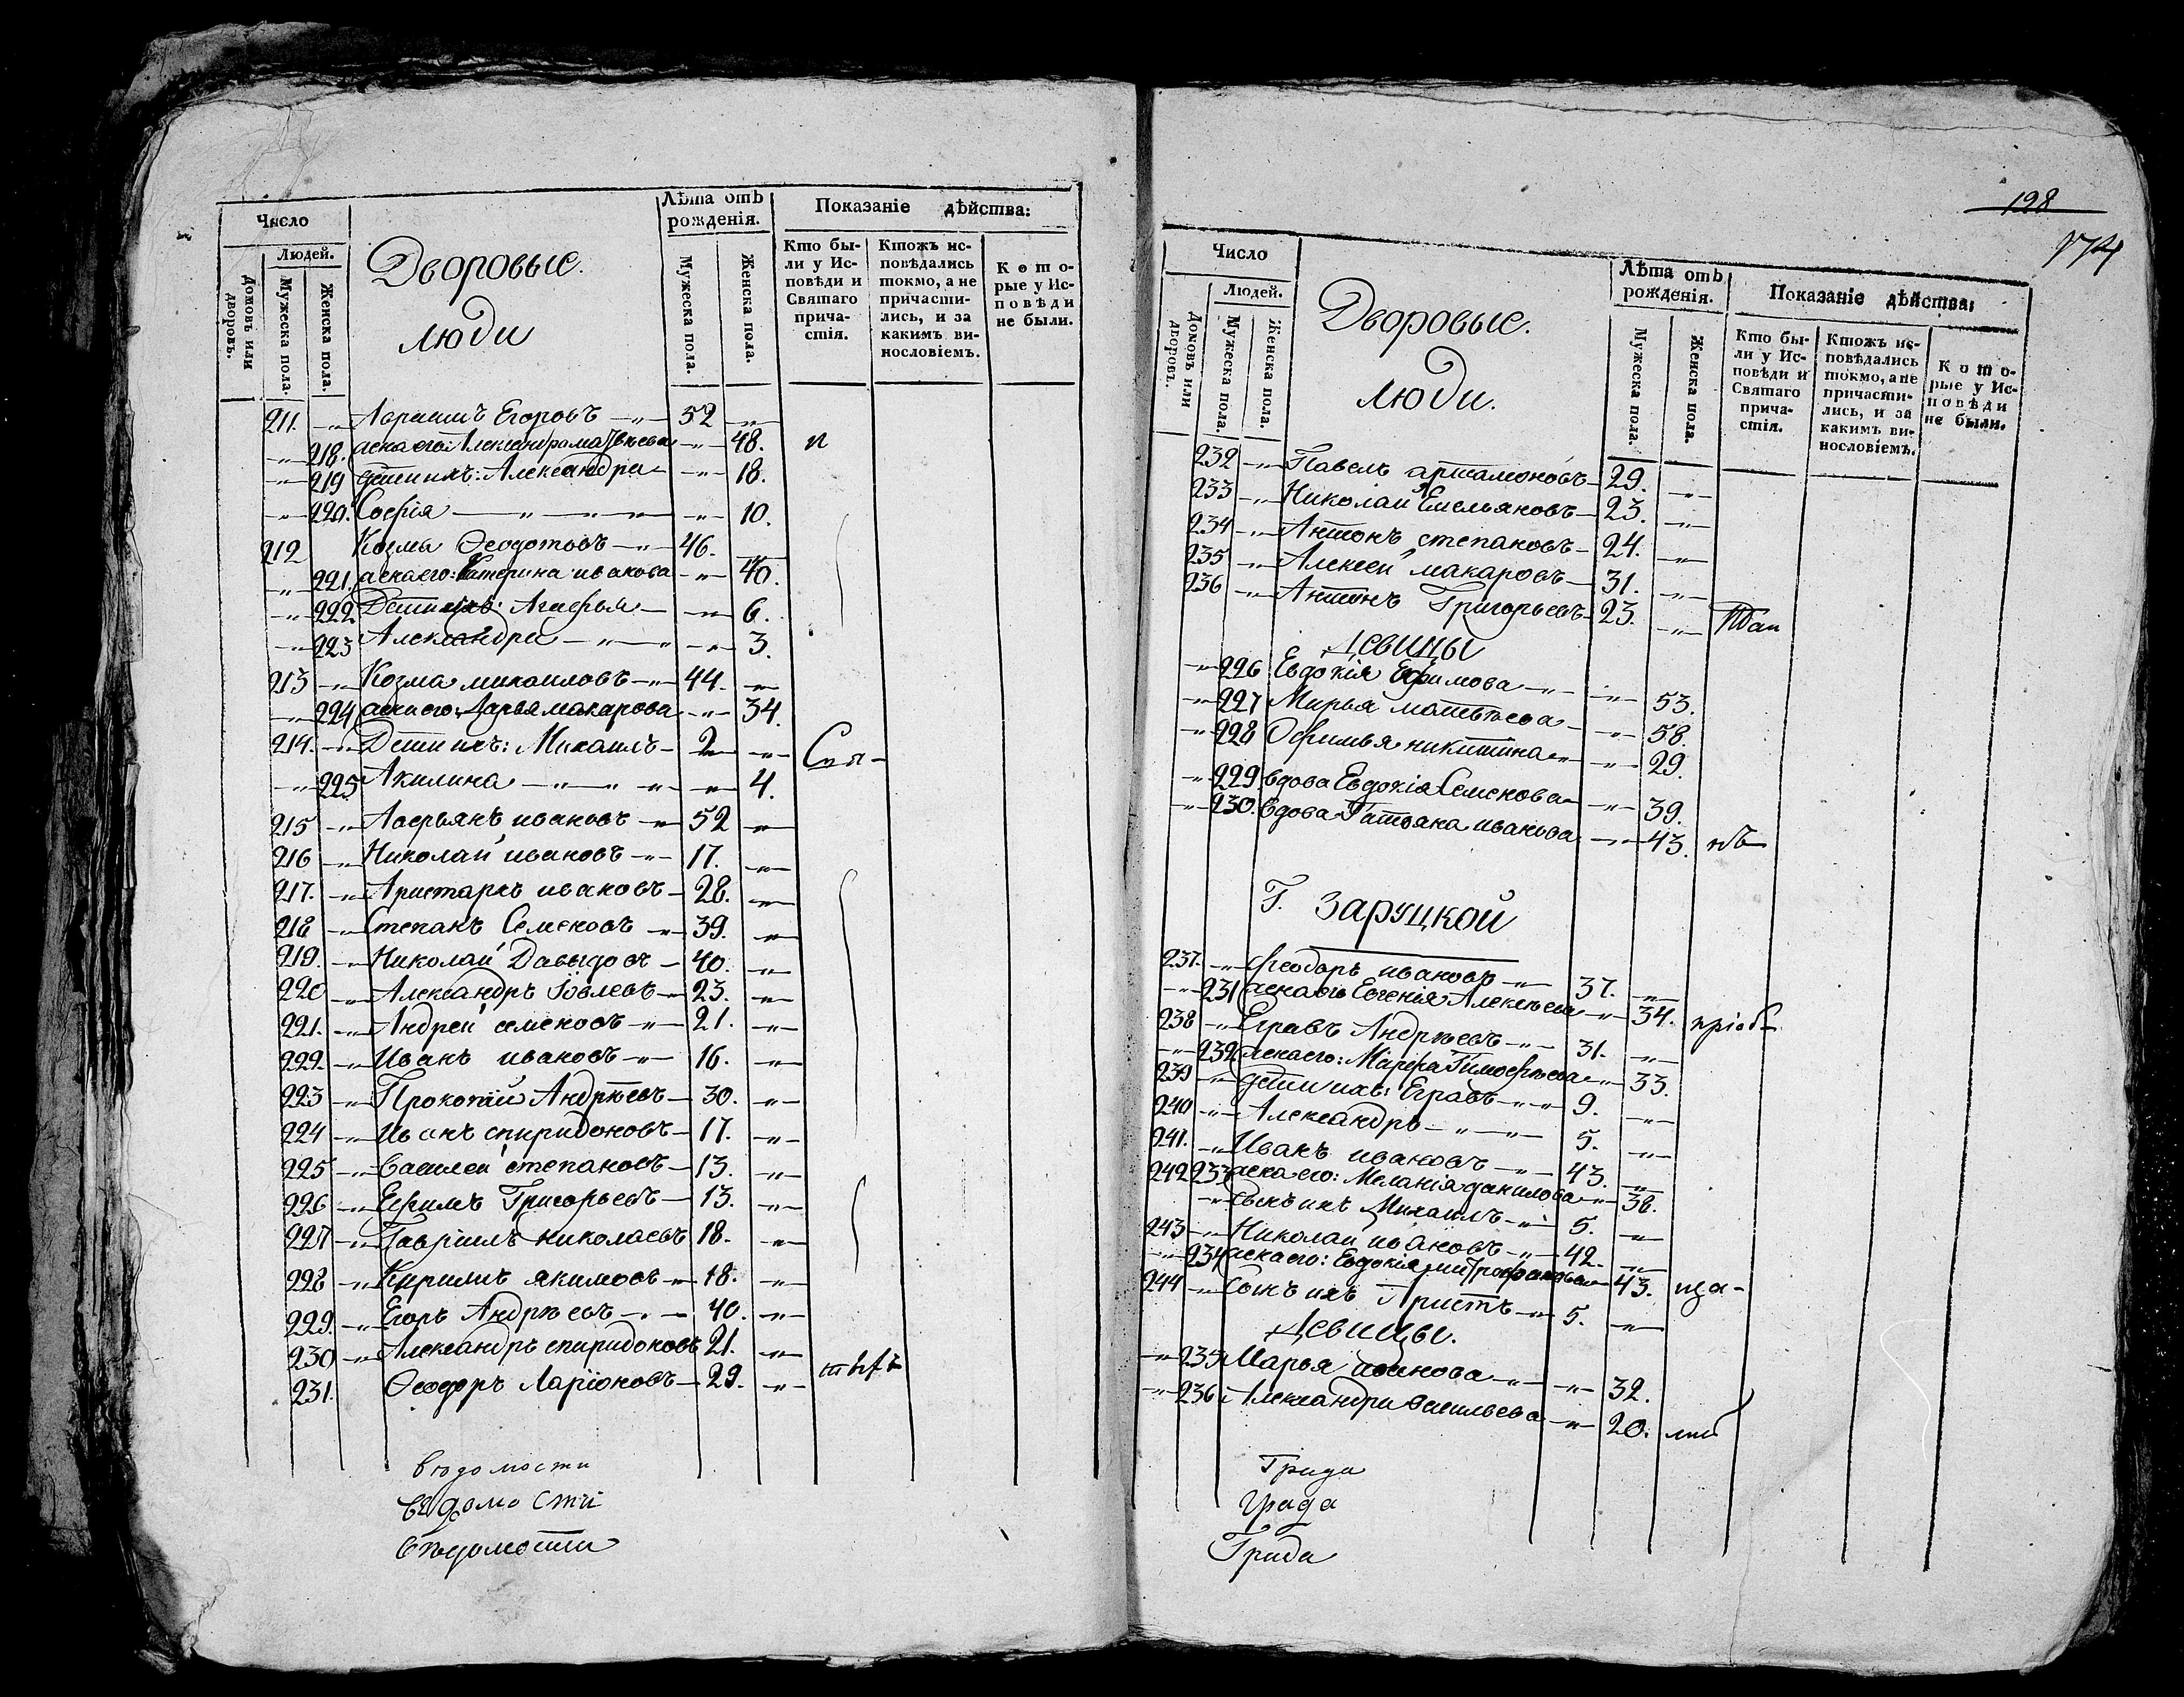 Число
Людей.
Домовъ или дворовъ.
Мужеска пола.
Женска пола.
Дворовые.
люди
Лѣта отъ рожденія.
Мужеска пола.
Женска пола.
Показаніе дѣйства:
Кто бы-
ли у Ис-
повѣди и
Святаго
прича-
стія.
Ктожъ ис-
повѣдались
токмо, а не
причасти-
лись, и за
какимъ ви-
нословіемъ.
Кото-
рые у Ис-
повѣди
не были.
211. Авраамъ Егоровъ 52
218. жена его: Александра матвѣева 48. и
219 дѣти ихъ: Александра 18.
220. Софія 10.
212 Козма Ѳеодотовъ 46.
221. жена его: Катерина иванова 40.
222 Дѣти ихъ: Агафья 6.
223 Александра 3.
213 Козма михаиловъ 44.
224 жена его Дарья макарова 34.
214. Дѣти ихъ: Михаилъ 2 Свя-
225 Акилина 4.
215 Аверьянъ ивановъ 52
216 Николай ивановъ 17.
217. Аристархъ ивановъ 28.
218 Степанъ Семеновъ 39.
219. Николай Давыдовъ 40.
220 Александръ Іовлевъ 23.
221. Андрей семеновъ 21.
222. Иванъ ивановъ 16.
223 Прокопій Андрѣевъ 30.
224 Иванъ спиридоновъ 17.
225 Василей степановъ 13.
226 Ефимъ Григорьевъ 13.
227 Гавріилъ николаевъ 18.
228 Кирилъ якимовъ 18.
229. Егоръ Андрѣевъ 40.
230 Александръ спиридоновъ 21.
231. Ѳеодоръ Ларіоновъ 29.
вѣдомости
вѣдомости
вѣдомости
198
174
Число
Людей.
Домовъ или дворовъ.
Мужеска пола.
Женска пола.
Дворовые.
люди.
Лѣта отъ рожденія.
Мужеска пола.
Женска пола.
Показаніе дѣйства:
Кто бы-
ли у Ис-
повѣди и
Святаго
прича-
стія.
Ктожъ ис-
повѣдались
токмо, а не
причасти-
лись, и за
какимъ ви-
нословіемъ.
Кото-
рые у Ис-
повѣди
не были.
232 Павелъ артамоновъ 29.
233 Николай Емельяновъ 23.
234 Антонъ степановъ 24.
235 Алексей макаровъ 31.
236 Антонъ Григорьевъ 23.
Девицы
226 Евдокія Ефимова 53.
227 Марья матвѣева 58.
228 Офимья никитина 29.
229 вдова Евдокія Семенова 39.
230. вдова Татьяна иванова 43.
Г. Заруцкой
237. Феодоръ ивановъ 37.
231 жена его Евгенія Алексѣева 34. пріоб-
238 Еграфъ Андрѣевъ 31.
232 жена его: Марфа Тимофѣева 33.
239 дѣти ихъ: Еграфъ 9.
240 Александръ 5.
241. Иванъ ивановъ 43.
233 жена его: Меланія данилова 38.
242 сынъ ихъ Михаилъ 5.
243 Николай ивановъ 42.
234 жена его: Евдокія митрофанова 43. ща-
244 Сынъ ихъ Аристъ 5.
Девицы.
235 Марья иванова 32.
236 Александра васильева 20.
Града
Града
Града